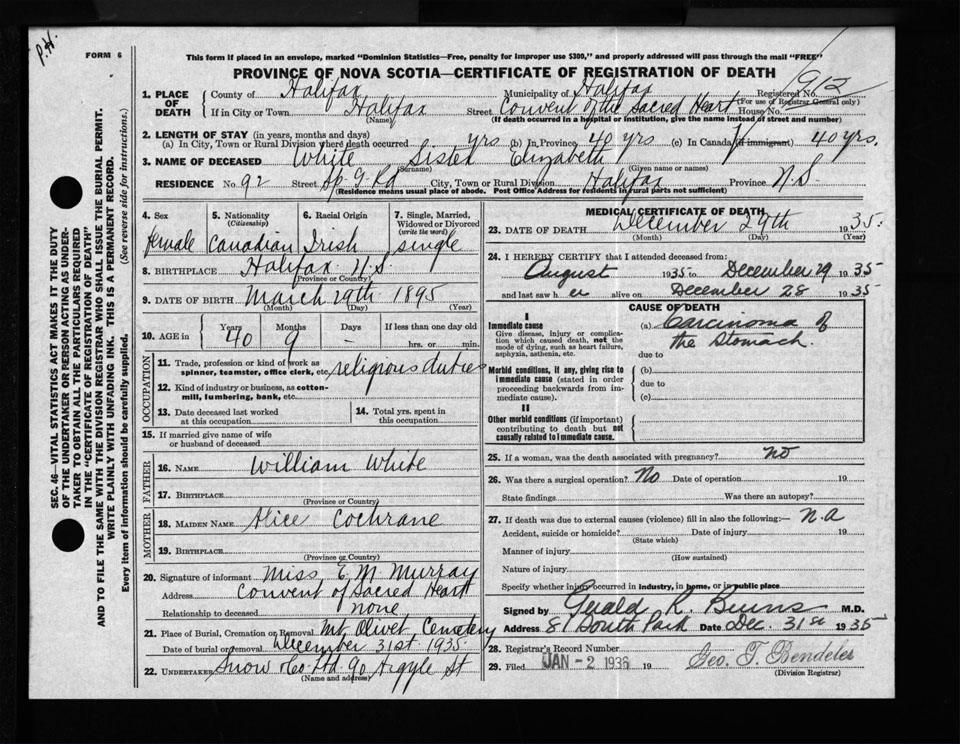 P.H.
FORM 6
This form if placed in an envelope, marked "Dominion Statistics—Free, penalty for improper use $300," and properly addressed will pass through the mail "FREE"
PROVINCE OF NOVA SCOTIA—CERTIFICATE OF REGISTRATION OF DEATH
1. PLACE OF DEATH
County of Halifax Municipality of Halifax Registered No. 962
(For use of Registrar General only)
If in City or Town Halifax Street Convent of the Sacred Heart House No.
(Name) (If death occurred in a hospital or institution, give the name instead of street and number)
2. LENGTH OF STAY (in years, months and days)
(a) In City, Town or Rural Division where death occurred yrs (b) In Province 40 yrs (c) In Canada (if immigrant) 40 yrs.
3. NAME OF DECEASED White Sister Elizabeth
(Surname) (Given name or names)
RESIDENCE No. 92 Street Sp. G. Rd City, Town or Rural Division Halifax Province N.S.
(Residence means usual place of abode. Post Office Address for residents in rural parts not sufficient)
4. Sex 5. Nationality (Citizenship) 6. Racial Origin 7. Single, Married, Widowed or Divorced (write the word)
female Canadian Irish single
8. BIRTHPLACE Halifax N.S.
(Province or Country)
9. DATE OF BIRTH March 29th 1895
(Month) (Day) (Year)
10. AGE in Years Months Days If less than one day old
40 9 – hrs. or min.
OCCUPATION
11. Trade, profession or kind of work as spinner, teamster, office clerk, etc. religious duties
12. Kind of industry or business, as cotton-mill, lumbering, bank, etc.
13. Date deceased last worked at this occupation
14. Total yrs. spent in this occupation
15. If married give name of wife or husband of deceased
FATHER
16. NAME William White
17. BIRTHPLACE
(Province or Country)
MOTHER
18. MAIDEN NAME Alice Cochrane
19. BIRTHPLACE
(Province or Country)
20. Signature of informant Miss E. M. Murray
Address Convent of Sacred Heart
Relationship to deceased none
21. Place of Burial, Cremation or Removal Mt. Olivet Cemetery
Date of burial or removal December 31st 1935.
22. UNDERTAKER Snow Co. Ltd. 90 Argyle St
(Name and address)
MEDICAL CERTIFICATE OF DEATH
23. DATE OF DEATH December 29th 1935.
(Month) (Day) (Year)
24. I HEREBY CERTIFY that I attended deceased from:
August 1935 to December 29 1935
and last saw her alive on December 28 1935
CAUSE OF DEATH
I
Immediate cause
Give disease, injury or complication which caused death, not the mode of dying, such as heart failure, asphyxia, asthenia, etc.
(a) Carcinoma of
the Stomach.
due to
Morbid conditions, if any, giving rise to immediate cause (stated in order proceeding backwards from immediate cause).
(b)
due to
(c)
II
Other morbid conditions (if important) contributing to death but not causally related to immediate cause.
25. If a woman, was the death associated with pregnancy? no
26. Was there a surgical operation? No Date of operation 19
State findings Was there an autopsy?
27. If death was due to external causes (violence) fill in also the following:— n.a
Accident, suicide or homicide? Date of injury 19
(State which)
Manner of injury
(How sustained)
Nature of injury
Specify whether injury occurred in industry, in home, or in public place
Signed by Gerald R. Burns M.D.
Address 81 South Park Date Dec. 31st 1935
28. Registrar's Record Number
29. Filed JAN - 2 1936 19 Geo. T. Bendeler
(Division Registrar)
SEC. 46—VITAL STATISTICS ACT MAKES IT THE DUTY
OF THE UNDERTAKER OR PERSON ACTING AS UNDER-
TAKER TO OBTAIN ALL THE PARTICULARS REQUIRED
IN THE "CERTIFICATE OF REGISTRATION OF DEATH"
AND TO FILE THE SAME WITH THE DIVISION REGISTRAR WHO SHALL ISSUE THE BURIAL PERMIT.
WRITE PLAINLY WITH UNFADING INK. THIS IS A PERMANENT RECORD.
Every item of information should be carefully supplied. (See reverse side for instructions.)